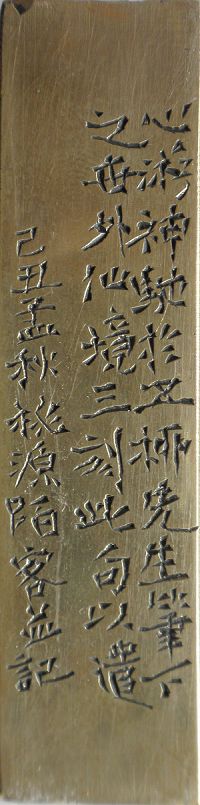 心游神馳於五柳先生筆下
之世外仙境三刻此句以遣
己丑孟秋桃源陌客並記